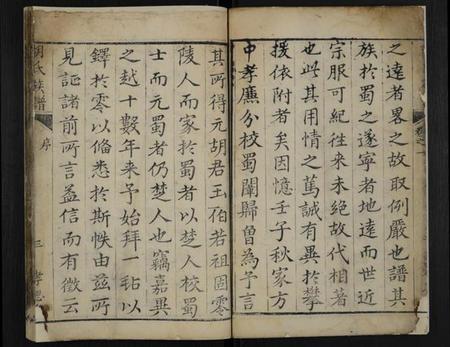 之遠者畧之故取例嚴也譜其
族於蜀之遂寧者地遠而世近
宗服可紀徃来未絶故代相著
也此其用情之篤誠有異於攀
援依附者矣因憶壬子秋家方
中孝廉分校蜀闈歸曾為予言
其所得元胡君玉伯若祖固零
陵人而家於蜀者以楚人校蜀
士而元蜀者仍楚人也竊嘉異
之越十數年来予始拜一秙以
鐸於零以俻悉於斯帙由兹所
見証諸前所言益信而有徵云
胡氏族譜
序
三
孝思